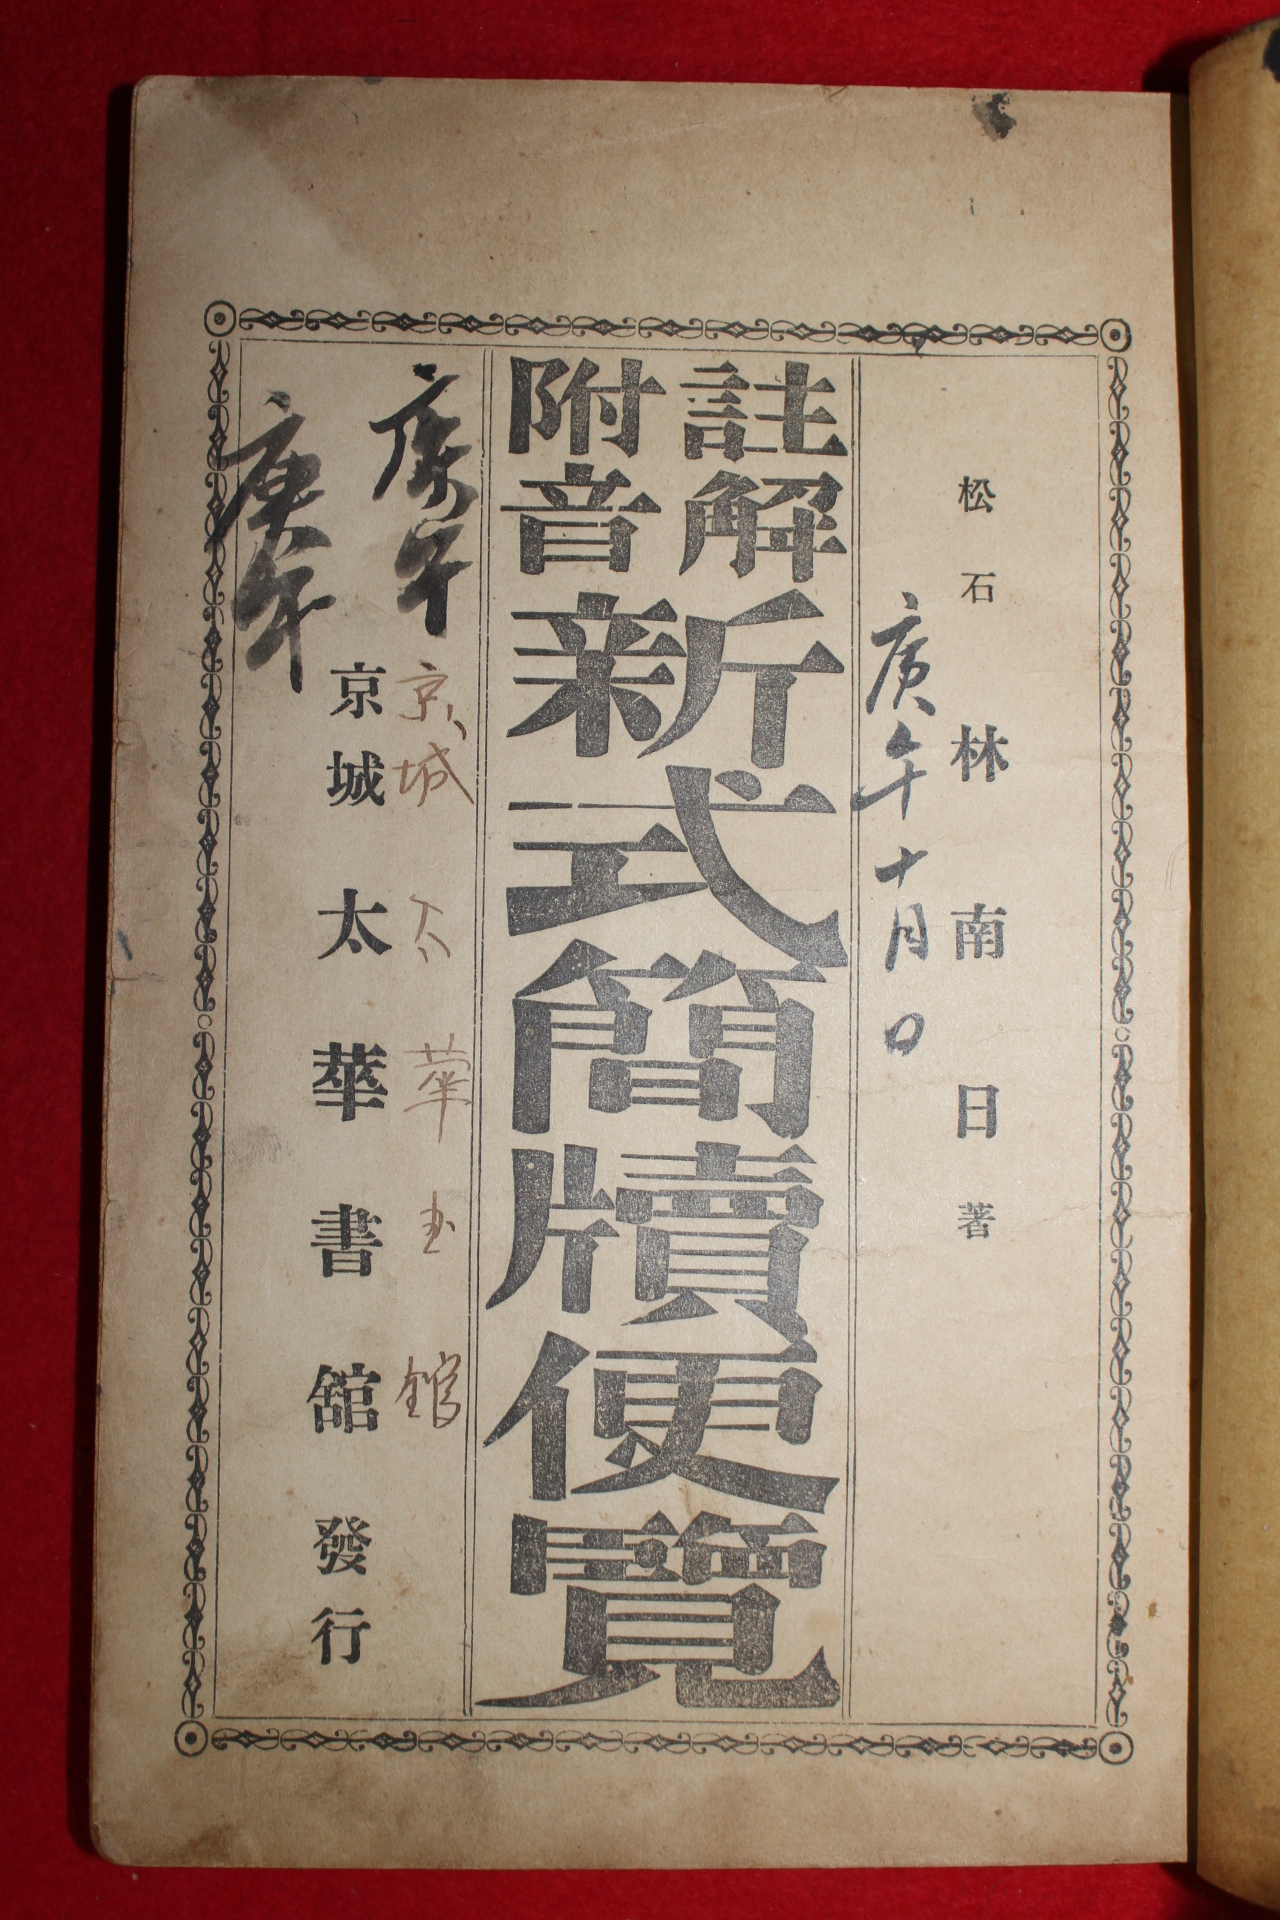 松石 林南日 著
庚午十月日
註解
附音
新式簡牘便覽
庚午
京城太華 館
京城太華書舘發行
庚午